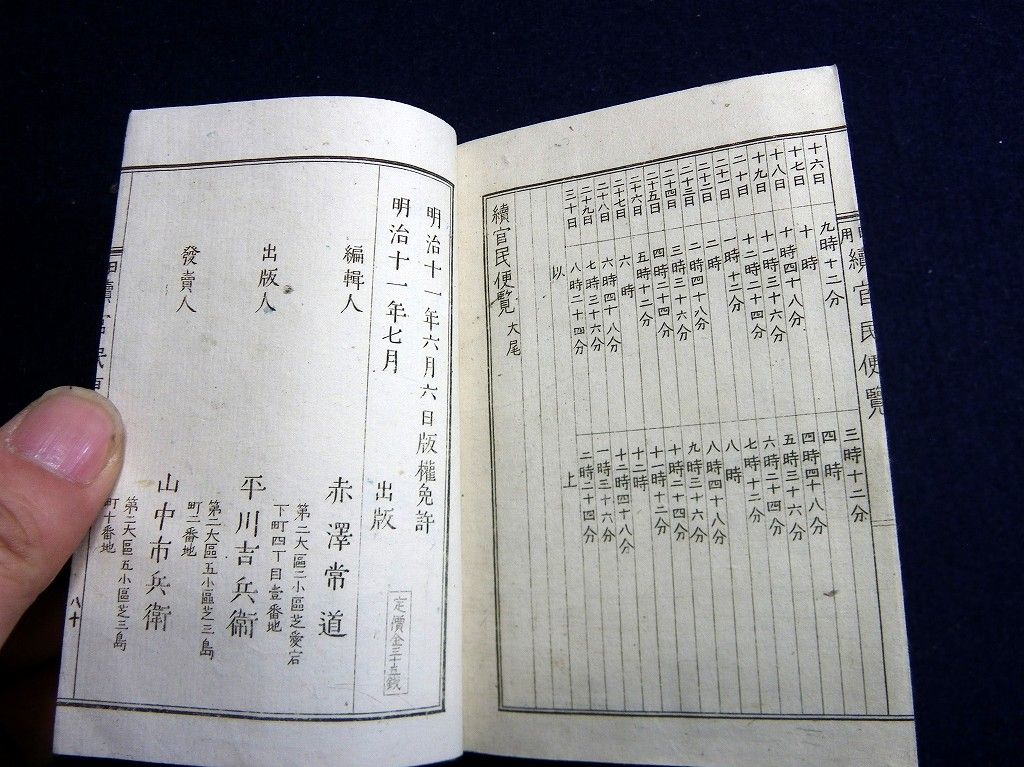 用續官民便覽
十六日 九時十二分 三時十二分
十七日 十時 四時
十八日 十時四十八分 四時四十八分
十九日 十一時三十六分 五時三十六分
二十日 十二時二十四分 六時二十四分
二十一日 一時十二分 七時十二分
二十二日 二時 八時
二十三日 二時四十八分 八時四十八分
二十四日 三時三十六分 九時三十六分
二十五日 四時二十四分 十時二十四分
二十六日 五時十二分 十一時十二分
二十七日 六時 十二時
二十八日 六時四十八分 十二時四十八分
二十九日 七時三十六分 一時三十六分
三十日 八時二十四分 二時二十四分
以上
續官民便覽大尾
明治十一年六月六日版權免許
明治十一年七月 出版
定價金三十五錢
編輯人 赤澤常道
第二大區二小區芝愛宕
下町四丁目壹番地
出版人 平川吉兵衛
第二大區五小區芝三島
町二番地
發賣人 山中市兵衛
第二大區五小區芝三島
町十番地
八十